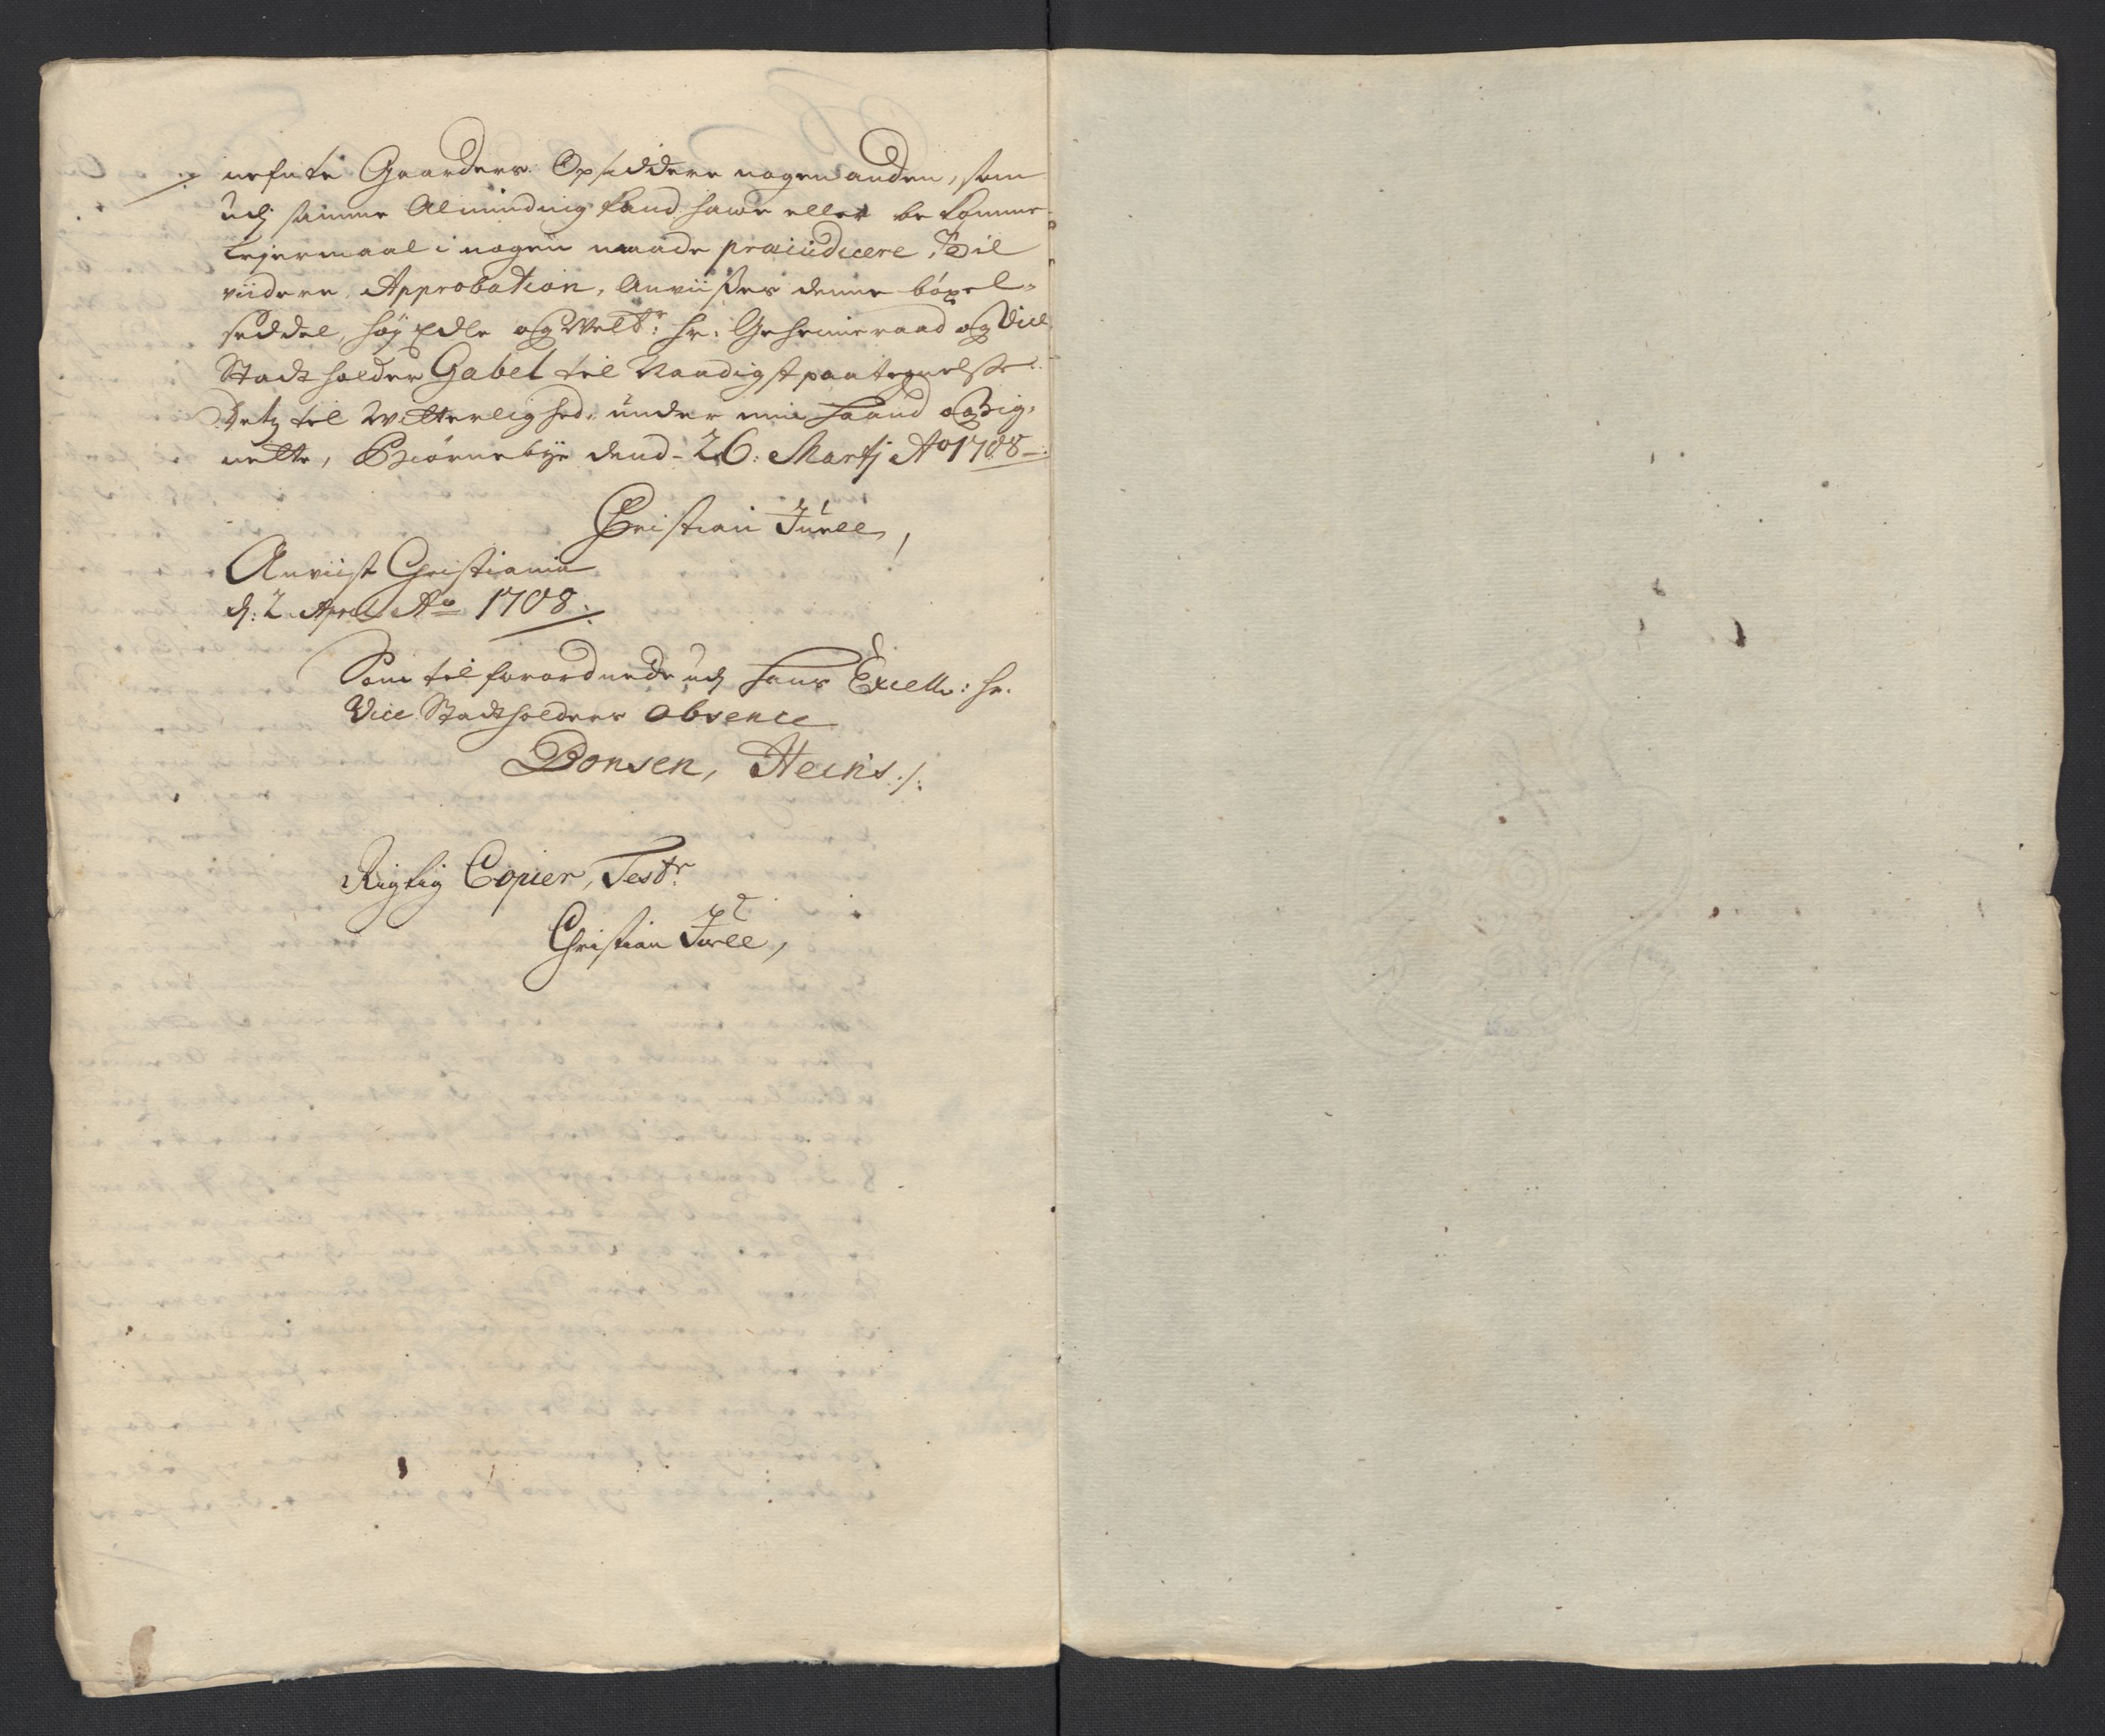 nefnte Gaarders Opsiddere nogen anden, som
udj samme Alminding kand hawe eller bekomme
Lejermaal i nogen maade præiudicere, Til
viidere Approbation, Anviises denne böxel-
seddel, höy Edle og Welb:r Hr: Geheimeraad og Vice
Stadtholder Gabel til Naadigst paategnelsse.
Dets til Witterlighed, under min haand og Sig-
nette, Biörnebye dend 26: Martj Ao 1708
Christian Juell,
Anviist Christiania
d: 2 April Ao 1708
Som tilforordnede udj hans Excell: Hr.
Vice Stadtholders Absence
Bonsen,
Rigtig Copier, Test:r
Christian Juell,